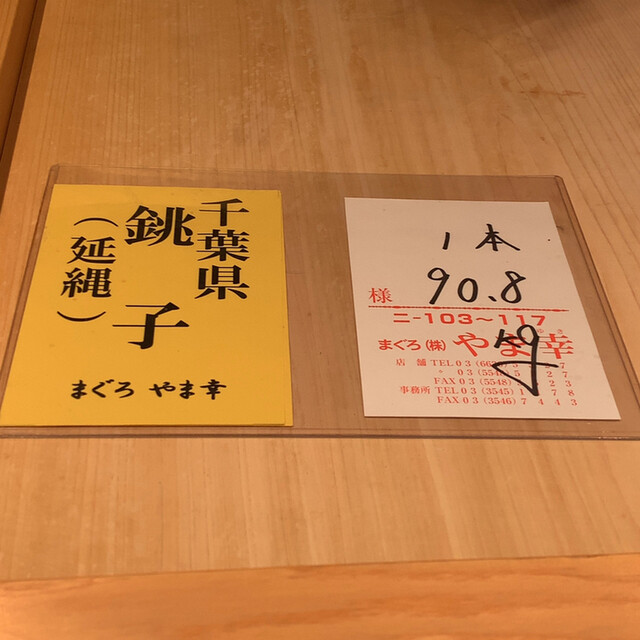 千葉県
銚子
（延縄）
まぐろ やま幸
1本
90.8
様
ニ-103～117
まぐろ(株)やま幸
店舗 TEL03
FAX03(5548)
事務所 TEL03(3545)
FAX03(3546)7443